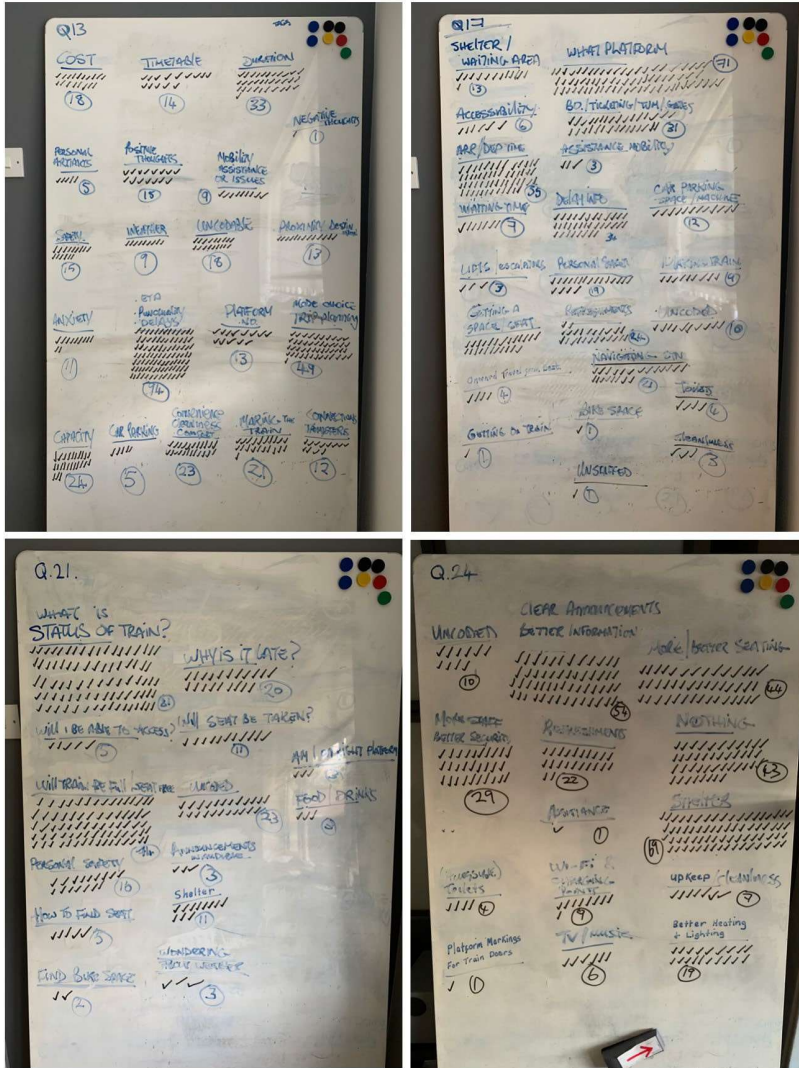 Q13
COST
TIMETABLE
DURATION
18
14
33
NEGATIVE THOUGHTS
1
PERSONAL
ARTIFACTS
5
POSITIVE
THOUGHTS
15
MOBILITY
ASSISTANCE
OR ISSUES
9
SAFETY
15
WEATHER
9
UNCODABLE
18
PROXIMITY
13
ANXIETY
11
ETA
PUNCTUALITY
DELAYS
94
PLATFORM
NO.
13
MODE CHOICE
TRIP PLANNING
49
CAPACITY
24
CAR PARKING
5
CONVENIENCE
CLEANLINESS
COMFORT
23
MAKING THE
TRAIN
21
CONNECTIONS
TRANSFERS
12
Q17
SHELTER /
WAITING AREA
13
WHAT PLATFORM
71
ACCESSIBILITY
6
31
ARR/DEP TIME
55
ASSISTANCE MOBILITY
3
WAITING TIME
7
DELAY INFO
CAR PARKING
SPACE/MACHINE
12
LIFTS/ESCALATORS
3
PERSONAL SAFETY
19
9
GETTING A
SPACE/SEAT
REFRESHMENTS
24
UNCODED
10
NAVIGATING STN
21
4
Toilets
4
BIKE SPACE
1
GETTING ON TRAIN
1
CLEANLINESS
3
UNSTAFFED
1
Q.21.
WHAT IS
STATUS OF TRAIN?
81
WHY IS IT LATE?
20
WILL I BE ABLE TO ACCESS?
5
WILL SEAT BE TAKEN?
11
AM I ON RIGHT PLATFORM
WILL TRAIN BE FULL/SEAT FREE
UNCODED
23
FOOD/DRINKS
3
PERSONAL SAFETY
16
ANNOUNCEMENTS
3
Shelter
11
HOW TO FIND SEAT
5
WONDERING
ABOUT WEATHER
3
FIND BIKE SPACE
2
Q.24
CLEAR ANNOUNCEMENTS
BETTER INFORMATION
54
UNCODED
10
MORE/BETTER SEATING
44
MORE STAFF
BETTER SECURITY
29
REFRESHMENTS
22
NOTHING
43
ASSISTANCE
1
SHELTER
69
(Accessible)
Toilets
4
WI-FI &
CHARGING
POINTS
9
UPKEEP/CLEANLINESS
7
Platform Markings
For Train Doors
1
TV/MUSIC
6
Better Heating
+ Lighting
19